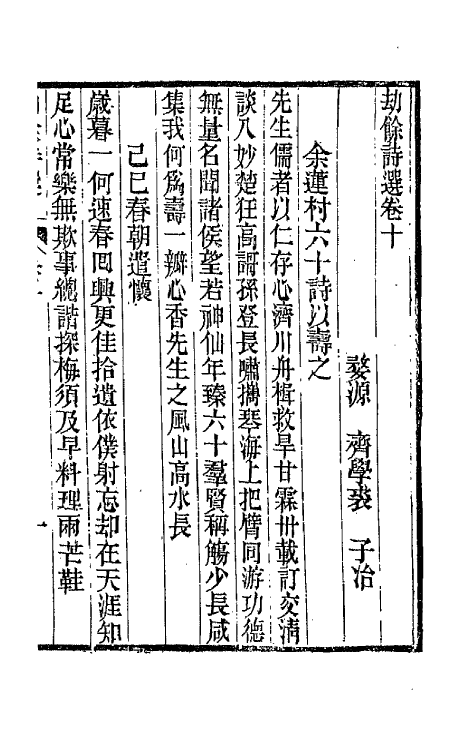 劫餘詩選卷十
婺源　齊學裘　子冶
余蓮村六十詩以壽之
先生儒者以仁存心濟川舟楫救旱甘霖卅載訂交淸
談入妙楚狂高謌孫登長嘯攜琴海上把臂同游功德
無量名聞諸侯望若神仙年臻六十羣賢稱觴少長咸
集我何爲壽一瓣心香先生之風山高水長
己巳春朝遣懷
歲暮一何速春囘興更佳拾遺依僕射忘却在天涯知
足心常樂無欺事總諧探梅須及早料理兩芒鞋
一